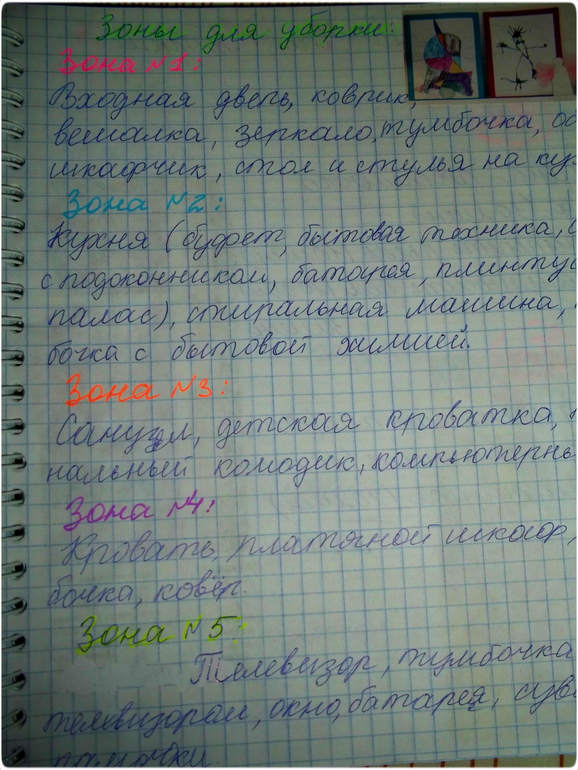 Зоны для уборки:
Зона №1:
Входная дверь, коврик,
вешалка, зеркало, тумбочка,
шкафчик, стол и стулья на
Зона №2:
Кухня (буфет, бытовая техника,
с подоконником, батарея, плинтус
палас), стиральная машина,
бочка с бытовой химией.
Зона №3:
Санузел, детская кроватка,
нальный комодик, компьютерны
Зона №4:
Кровать, платяной шкаф,
бочка, ковёр.
Зона №5:
Телевизор, тумбочка
телевизором, окно, батарея,